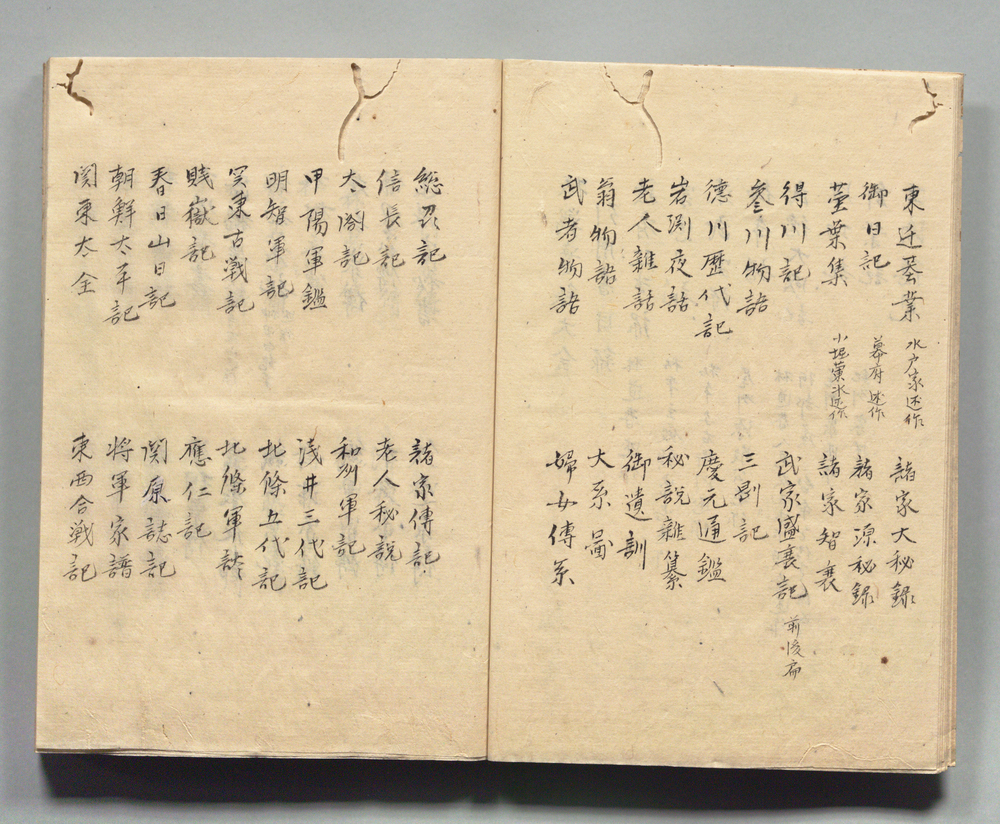 東迁基業 水戸家述作 諸家大秘録
御日記 幕府述作 諸家深秘録
葉集 諸家智嚢
得川記 武家盛衰記 前後扁
参川物語 記
徳川歴代記 慶元通鑑
岩渕夜話 秘説雜纂
老人雜話 御遺訓
翁物語 大系啚
武者物語 婦女傳系
総見記 諸家傳記
信長記 老人秘説
太閤記 和州軍記
甲陽軍鑑 浅井三代記
明智軍記 北條五代記
関東古戦記 北條軍談
賎嶽記 應仁記
春日山日記 関原誌記
朝鮮太平記 将軍家譜
関東太全 東西合戦記